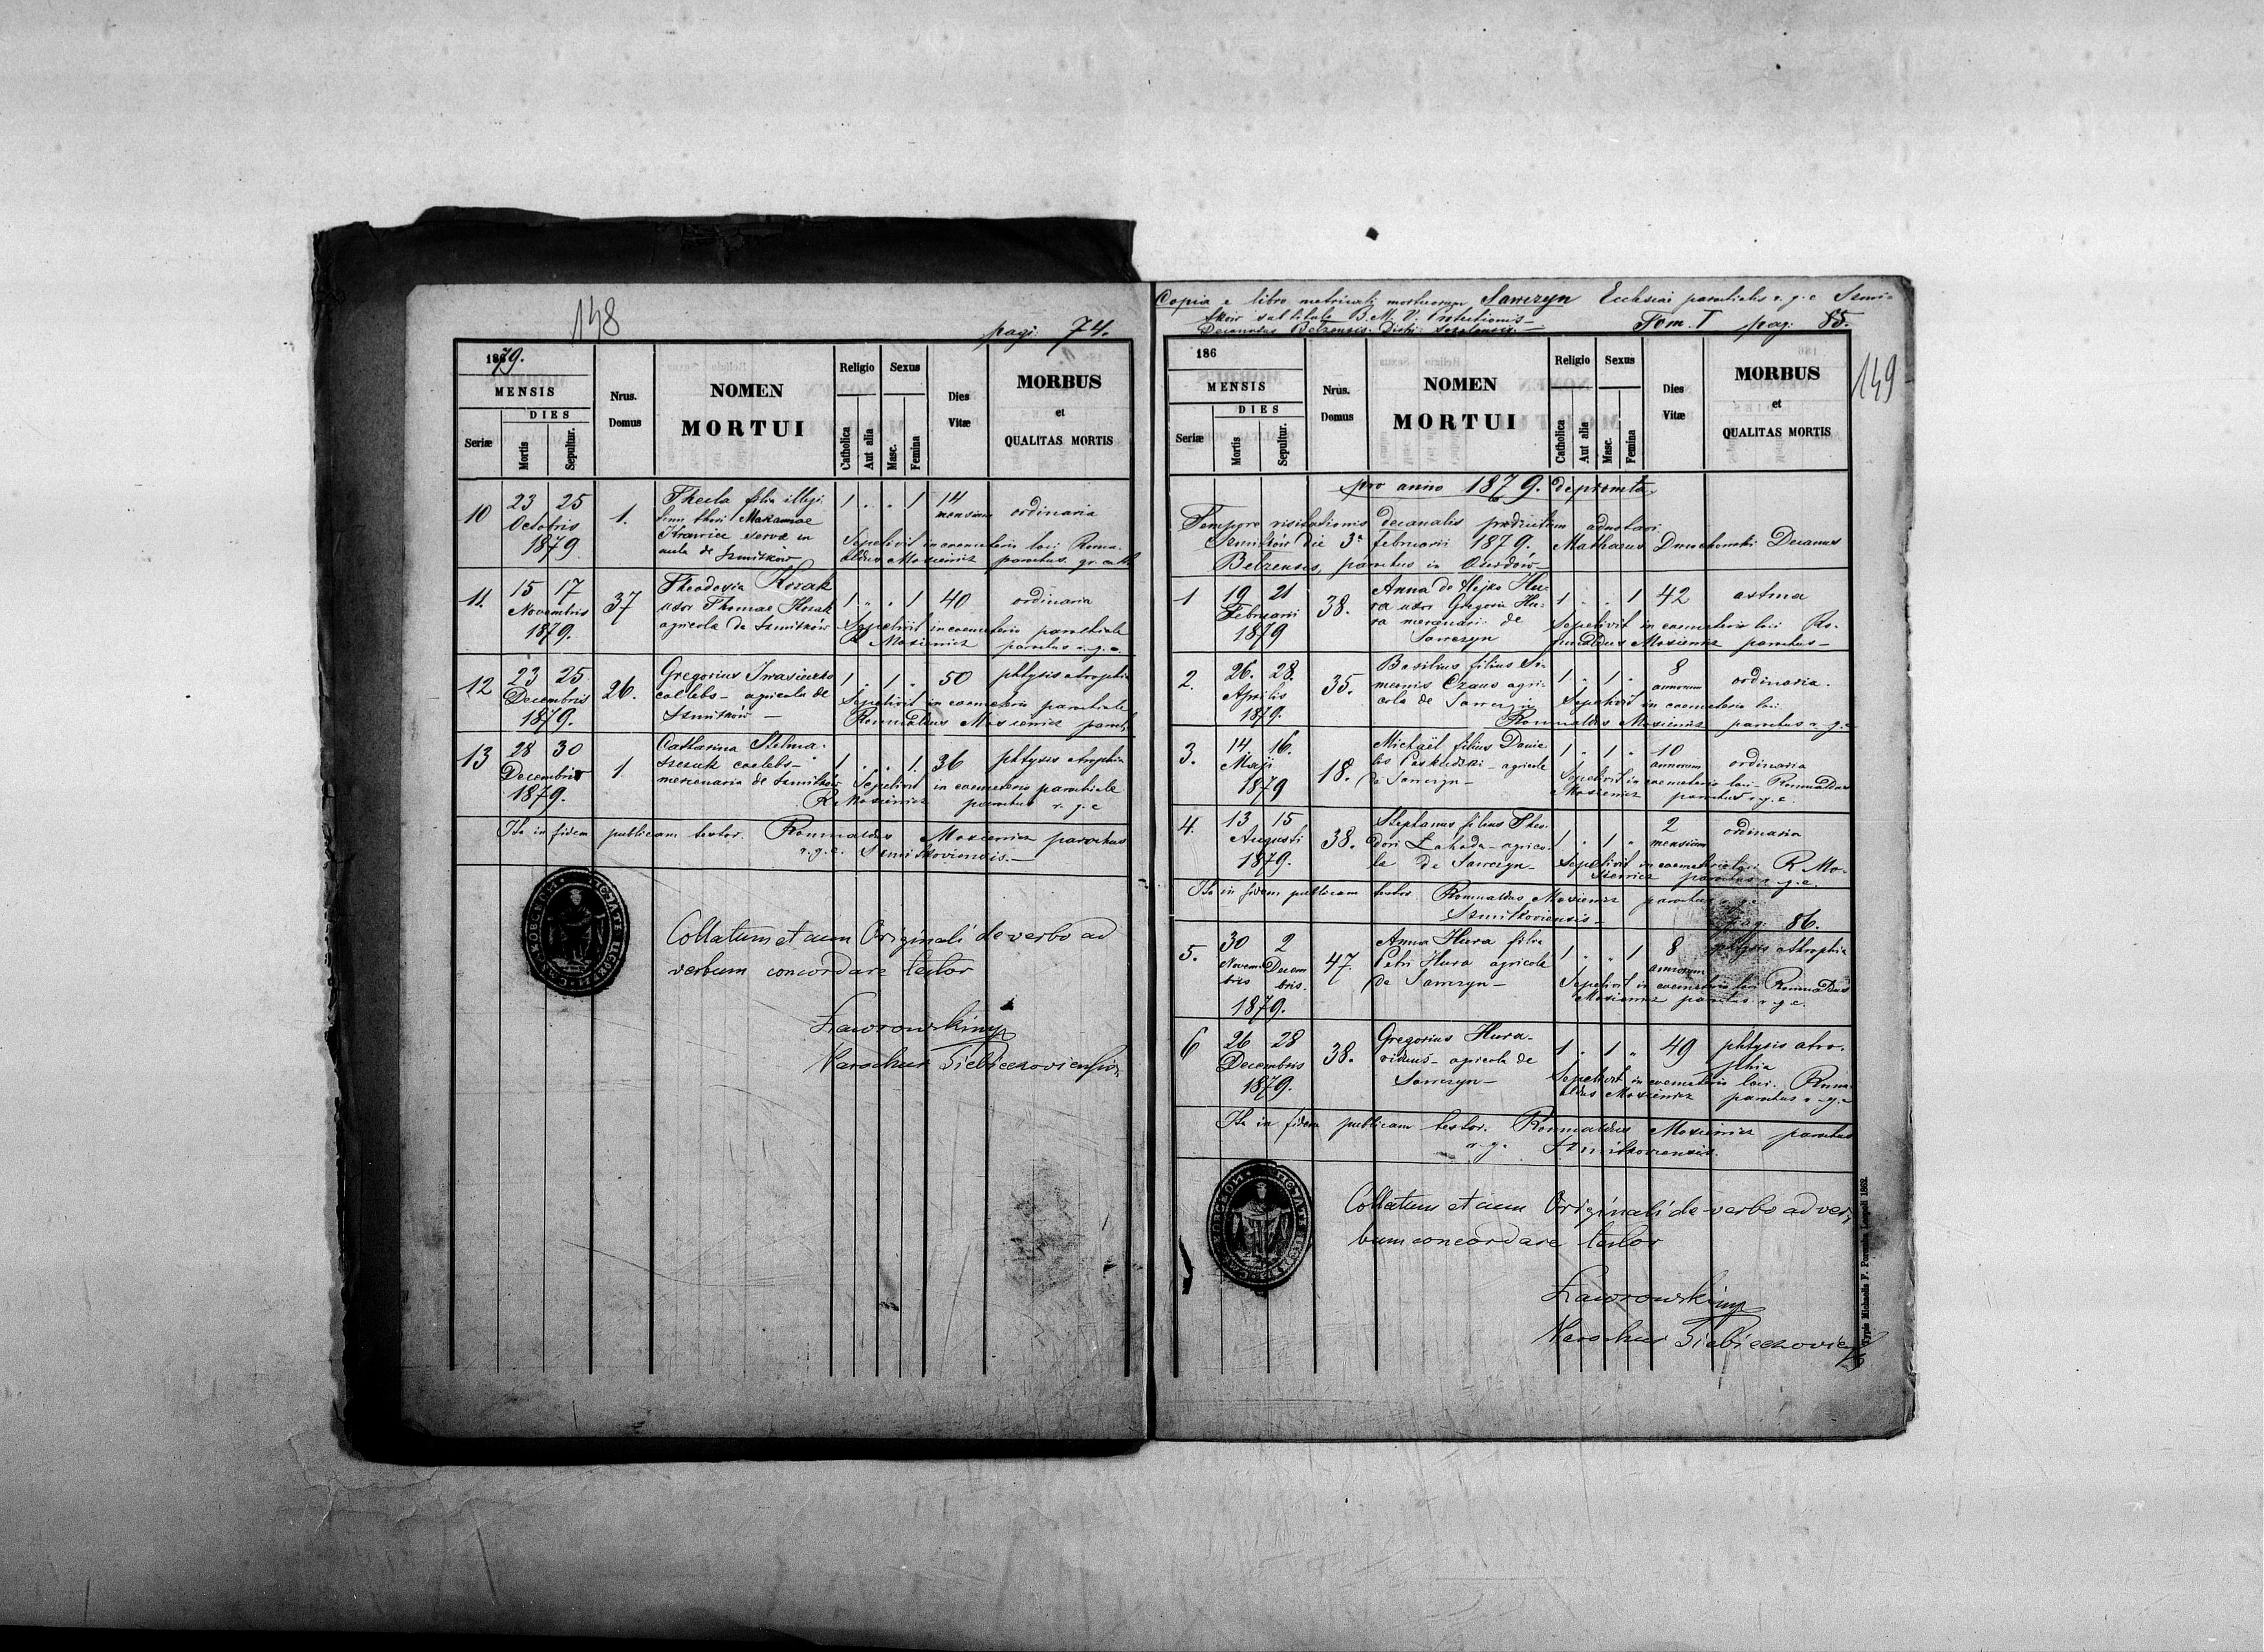 148
pagi. 74.
1879.
MENSIS
DIES
Seriæ
Mortis
Sepultur.
Nrus.
Domus
NOMEN
MORTUI
Religio
Catholica
Aut alia
Sexus
Masc.
Femina
Dies
Vitæ
MORBUS
et
QUALITAS MORTIS
10
23 25
Octobris
1879
1.
Thecla filia illegi-
Krawiec serva in
aula de Szmitków
1 . . 1
14
mensium
ordinaria
Sepelivit in coemeterio loci Romu-
aldus Moxiewicz parochus gr. cath
11.
15 17
Novembris
1879.
37
Theodosia Kozak
uxor Thomae Kozak
agricola de Szmitków
1 . . 1
40
ordinaria
Sepelivit in coemeterio parochiale
R Moxiewicz parochus r. g. c.
12
23 25
Decembris
1879.
26.
Gregorius Iwasieczko
coelebs - agricola de
Szmitków -
1 . 1 .
50
phtysis atrophia
Sepelivit in coemeterio parochiale
Romualdus Moxiewicz paroch.
13
28 30
Decembris
1879.
1.
Catharina Stelma-
szczuk coelebs -
mercenaria de Szmitków
1 . . 1.
36
phtysis atrophia
Sepelivit in coemeterio parochiale
R. Moxiewicz parochus r. g. c
Ita in fidem publicam testor. Romualdus Moxiewicz parochus
r. g. c. Szmitkoviensis. -
Collatum et cum Originali de verbo ad
verbum concordare testor
Ławrowski mp
Parochus
Copia e libro metricali mortuorum Sawczyn Ecclesiae parochialis r. g. c Szmi-
tków sub titulo B. M. V. Protectionis -
Decanatus Belzensis. Distr: Sokalensis. -
Tom. I pag: 85.
149
186
MENSIS
DIES
Seriæ
Mortis
Sepultur.
Nrus.
Domus
NOMEN
MORTUI
Religio
Catholica
Aut alia
Sexus
Masc.
Femina
Dies
Vitæ
MORBUS
et
QUALITAS MORTIS
pro anno 1879. depromta.
Tempore visitationis decanalis
Szmitków die 3a Februarii 1879. Mathaeus Decanus
Belzensis, parochus in
1
19 21
Februarii
1879
38.
Anna de Hejko Hu-
ra uxor Gregorii Hu-
ra mercenarii de
Sawczyn
1 . . 1
42
astma
Sepelivit in coemeterio loci Ro-
mualdus Moxiewicz parochus -
2.
26. 28.
Aprilis
1879.
35.
Basilius filius Si-
meonis Czaus agri-
cola de Sawczyn
1 . 1 .
8
annorum
ordinaria.
Sepelivit in coemeterio loci
Romualdus Moxiewicz parochus r. g. c
3.
14. 16.
Maji
1879
18.
Michaël filius Danie
lis agricola
de Sawczyn -
1 . 1 .
10
annorum
ordinaria
Sepelivit in coemeterio loci - Romualdus
Moxiewicz parochus r. g. c.
4.
13 15
Augusti
1879.
38.
Stephanus filius Theo-
dori agrico-
la de Sawczyn -
1 . 1 .
2
mensium
ordinaria
Sepelivit in coemeterio loci R Mo-
xiewicz parochus r. g. c.
Ita in fidem publicam testor Romualdus Moxiewicz parochus
Szmitkoviensis -
Pag. 86.
5.
30 2
Novem- Decem
bris bris.
1879.
47
Anna Hura filia
Petri Hura agricola
de Sawczyn -
1 . . 1
8
annorum
phtysis atrophia
Sepelivit in coemeterio loci Romualdus
Moxiewicz parochus r. g. c.
6
26 28
Decembris
1879.
38.
Gregorius Hura -
viduus - agricola de
Sawczyn -
1 . 1 .
49
phtysis atro-
phia
Sepelivit in coemeterio loci. Romu-
aldus Moxiewicz parochus r. g. c
Ita in fidem publicam testor. Romualdus Moxiewicz parochus
r. g. Szmitkoviensis.
Collatum et cum Originali de verbo ad ver-
bum concordare testor
Ławrowski mp
Parochus
Typis Michaelis F. Poremba, Leopoli 1862.